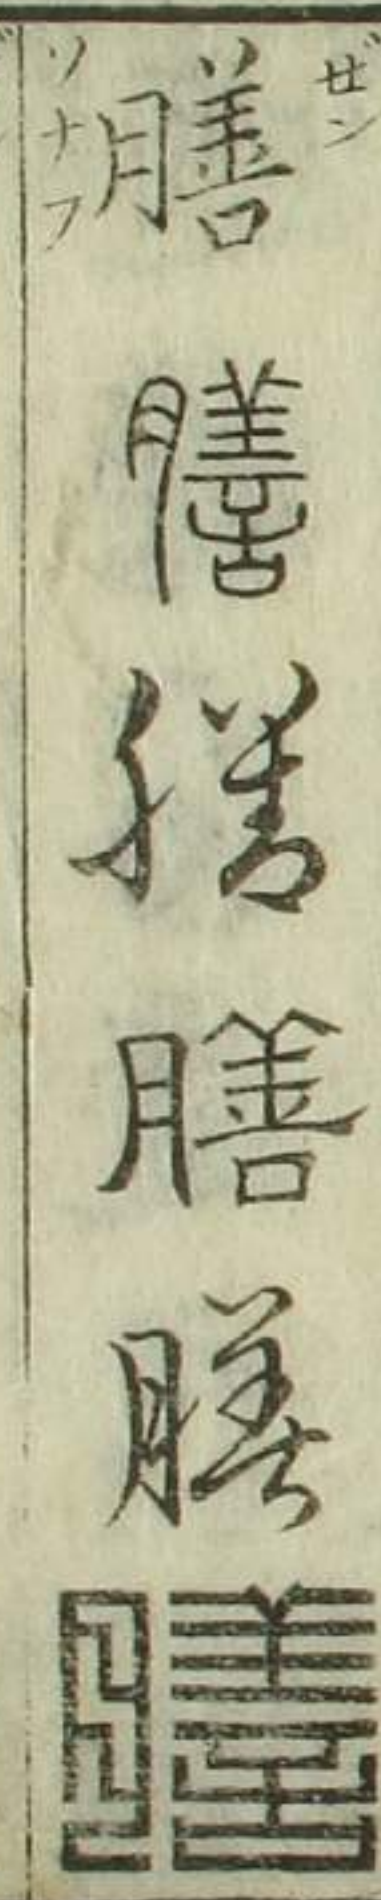 ゼン
膳
ソナフ
膳
膳
膳
膳
膳